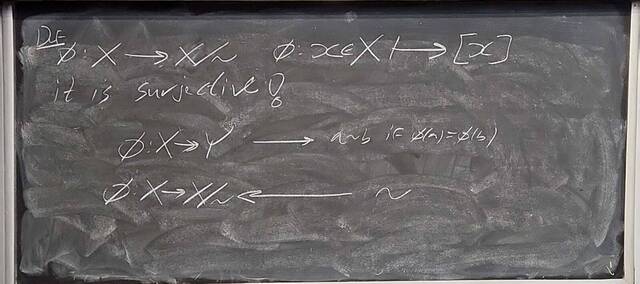 DEF
φ: X → X/~ φ: x∈X ↦ [x]
it is surjective!
φ: X → Y → a~b if φ(a)=φ(b)
φ: X → X/~ ← ~